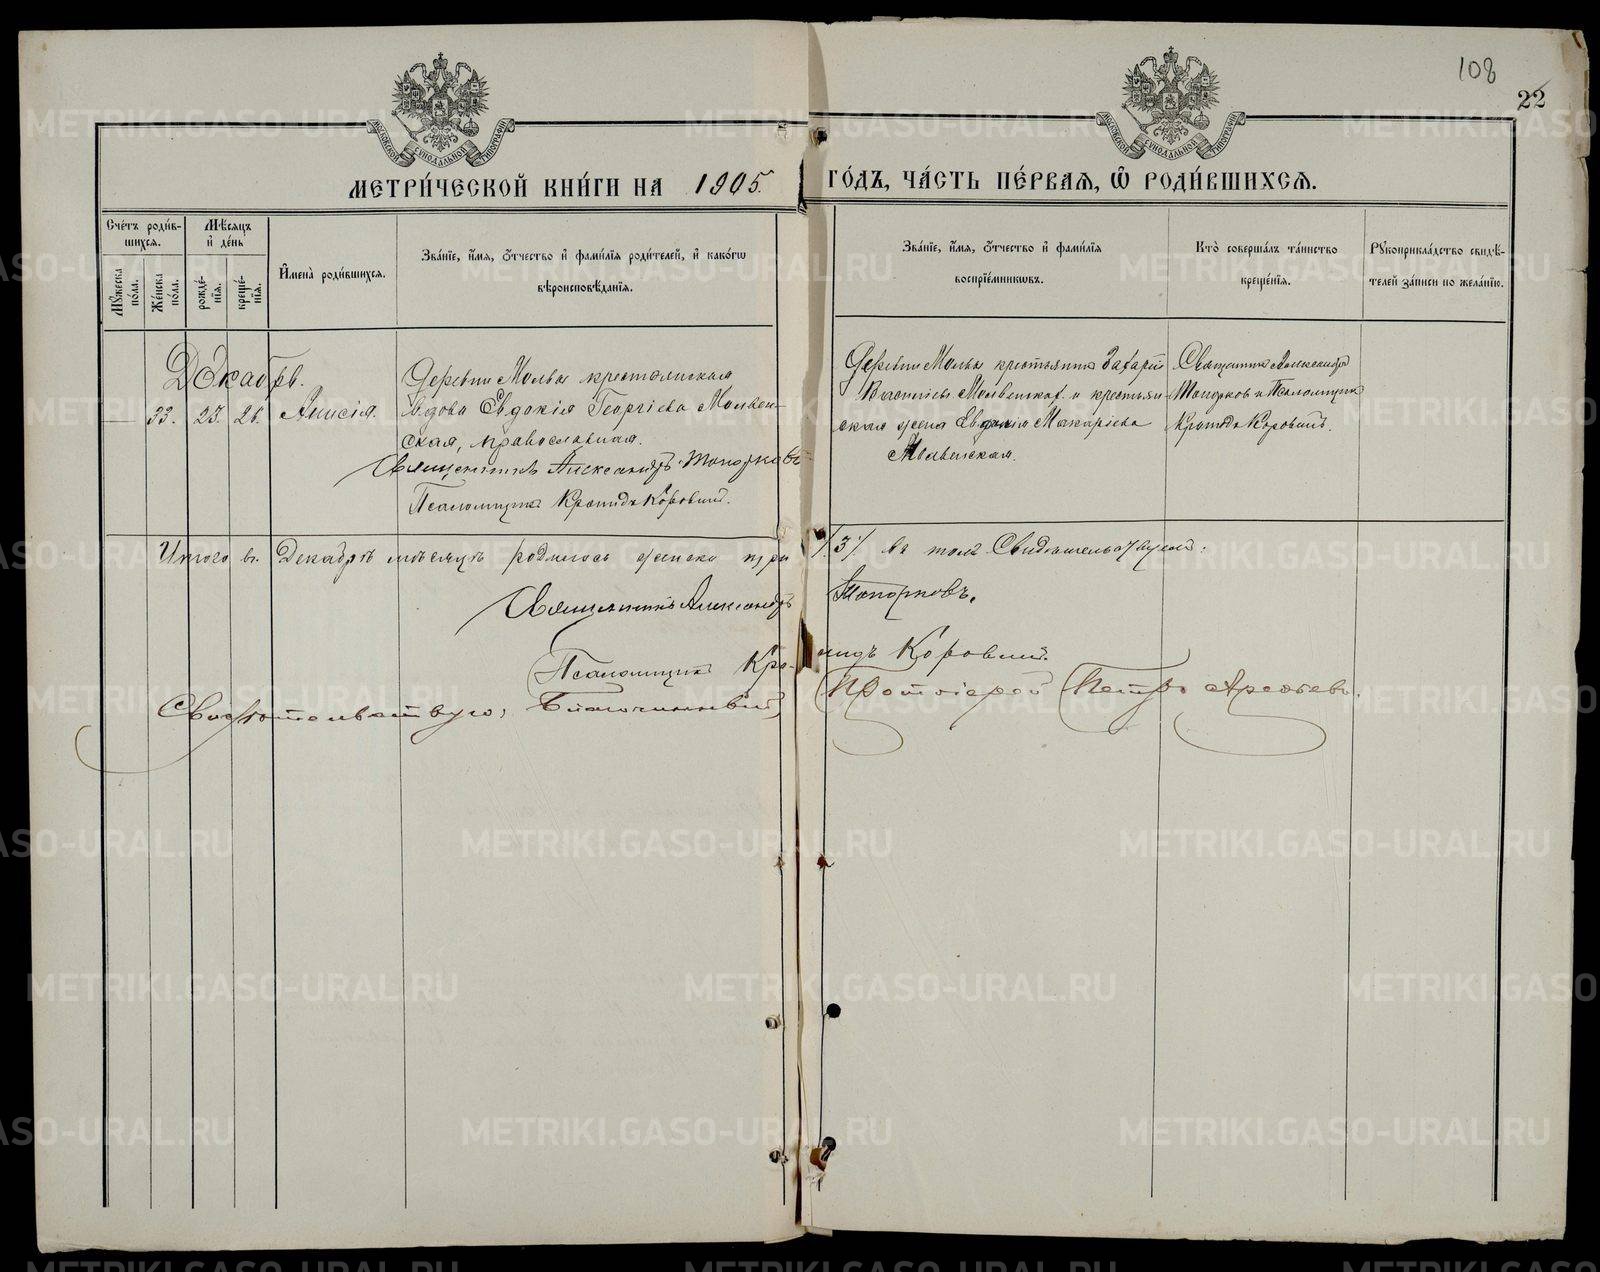 108
22
МЕТРИ́ЧЕСКОЙ КНИ́ГИ НА 1905. ГО́ДЪ, ЧА́СТЬ ПЕ́РВАЯ, Ѿ РОДИ́ВШИХСЯ.
Сче́тъ роди́в-
шихся.
Му́жеска по́ла.
Же́нска по́ла.
Мѣ́сяцъ
и́ де́нь
рожде́-
нїя.
креще́-
нїя.
И҆мена̀ роди́вшихся.
Зва́нїе, и҆́мя, ѻ҆́тчество и҆ фами́лїя роди́телей, и҆ како́гѡ
вѣроисповѣ́данїя.
Зва́нїе, и҆́мя, ѻ҆́тчество и҆ фами́лїя
воспрїе́мникѡвъ.
Кто̀ соверша́лъ та́инство
креще́нїя.
Рꙋкоприкла́дство свидѣ́-
телей за́писи по жела́нїю.
Декабрь.
33. 23. 26. Анисія.
Деревни Мольвы крестьянская
вдова Евдокія Георгіева Мольвен-
ская, православная.
Священникъ Александръ Топорковъ
Псаломщикъ Кронидъ Коровинъ.
Деревни Мольвы крестьянинъ Захарій
и крестьян-
ская жена Евдокія Макаріева
Мольвенская.
Священникъ Александръ
Топорковъ и Псаломщикъ
Кронидъ Коровинъ.
Итого въ Декабрѣ мѣсяцѣ родилось женска три /3/ въ томъ Свидѣтельствуемъ:
Священникъ Александръ Топорковъ.
Псаломщикъ Кронидъ Коровинъ.
Свидѣтельствую, Благочинный, Протоіерей Петръ Арефьевъ.
METRIKI.GASO-URAL.RU